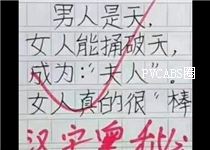 男人是天，
女人能捅破天，
成为：“夫人”。
女人真的很“棒
汉字奥秘
PVCABS圈